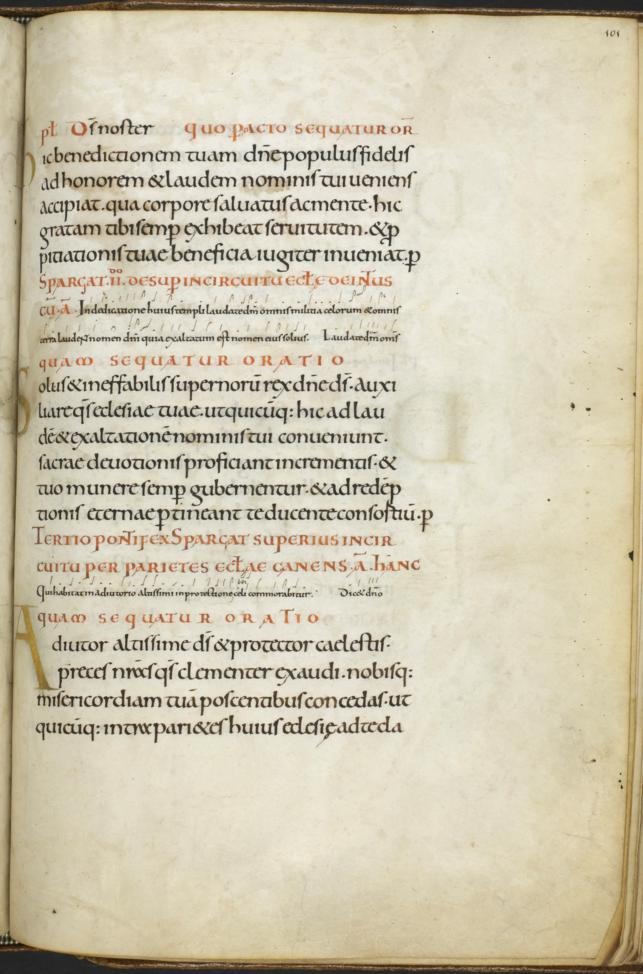 101
pł Ds̄ noster quo pacto sequatur or̄
Hic benedictionem tuam dn̄e populus fidelis
ad honorem & laudem nominis tui ueniens
accipiat. qua corpore saluatus ac mente. hic
gratam tibi semꝑ exhibeat seruitutem. & ꝓ
pitiationis tuae beneficia iugiter inueniat. ꝑ
Spargat .ii.do desup in circuitu eccłe deintus
cū. ā. In dedicatione huius templi laudate dm̄ omnis militia celorum & omnis
terra laud& nomen dm̄ quia exaltatum est nomen eius solius. Laudate dm̄ omīs
quam sequatur oratio
Solus & ineffabilis supernorū rex dn̄e ds̄. auxi
liare qs̄ eclesiae tuae. ut quicūq: hic ad lau
dē & exaltationē nominis tui conueniunt.
sacrae deuotionis proficiant incrementis. &
tuo munere semꝑ gubernentur. & ad redēp
tionis eternae ꝑtineant te ducente consortiū. ꝑ
Tertio pontifex Spargat superius in cir
cuitu per parietes eccłae canens. ā. hanc
Qui habitat in adiutorio altissimi in protectione celi commorabitur. Dic& dno
quam sequatur oratio
Adiutor altissime ds̄ & protector caelestis.
preces nrāsqs̄ clementer exaudi. nobisq:
misericordiam tuā poscentibus concedas. ut
quicūq: intra pari&es huius eclesię ad te cla